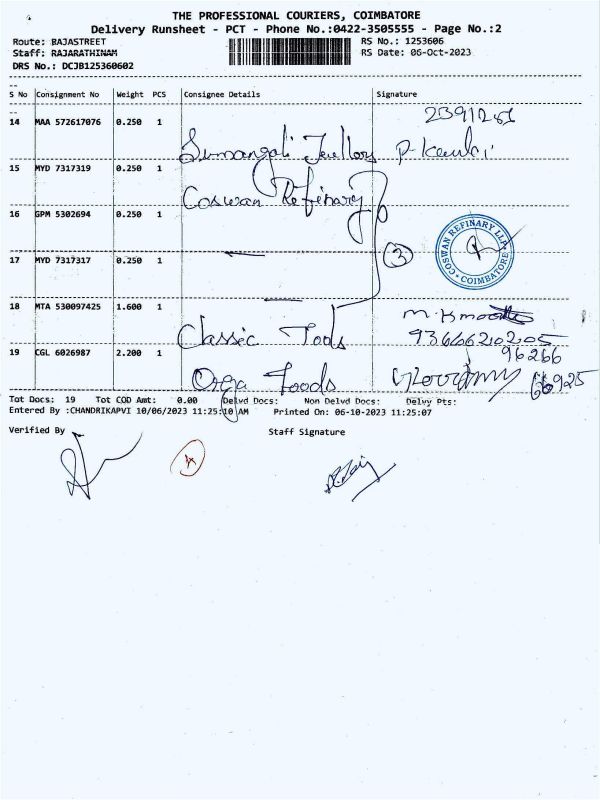 THE PROFESSIONAL COURIERS, COIMBATORE
Delivery Runsheet - PCT - Phone No.:0422-3505555 - Page No.:2
Route: RAJASTREET RS No.: 1253606
Staff: RAJARATHINAM RS Date: 06-Oct-2023
DRS No.: DCJB125360602
S No Consignment No Weight PCS Consignee Details Signature
2391251
14 MAA 572617076 0.250 1
Sumangali Jewllory P. Kavlci
15 MYD 7317319 0.250 1
Coswan Refinary
16 GPM 5302694 0.250 1
COSWAN REFINARY LLP
COIMBATORE
17 MYD 7317317 0.250 1
3
18 MTA 530097425 1.600 1
Classic Tools
19 CGL 6026987 2.200 1
96266
Orga Foods 16925
Tot Docs: 19 Tot COD Amt: 0.00 Delvd Docs: Non Delvd Docs: Delvy Pts:
Entered By :CHANDRIKAPVI 10/06/2023 11:25:10 AM Printed On: 06-10-2023 11:25:07
Verified By Staff Signature